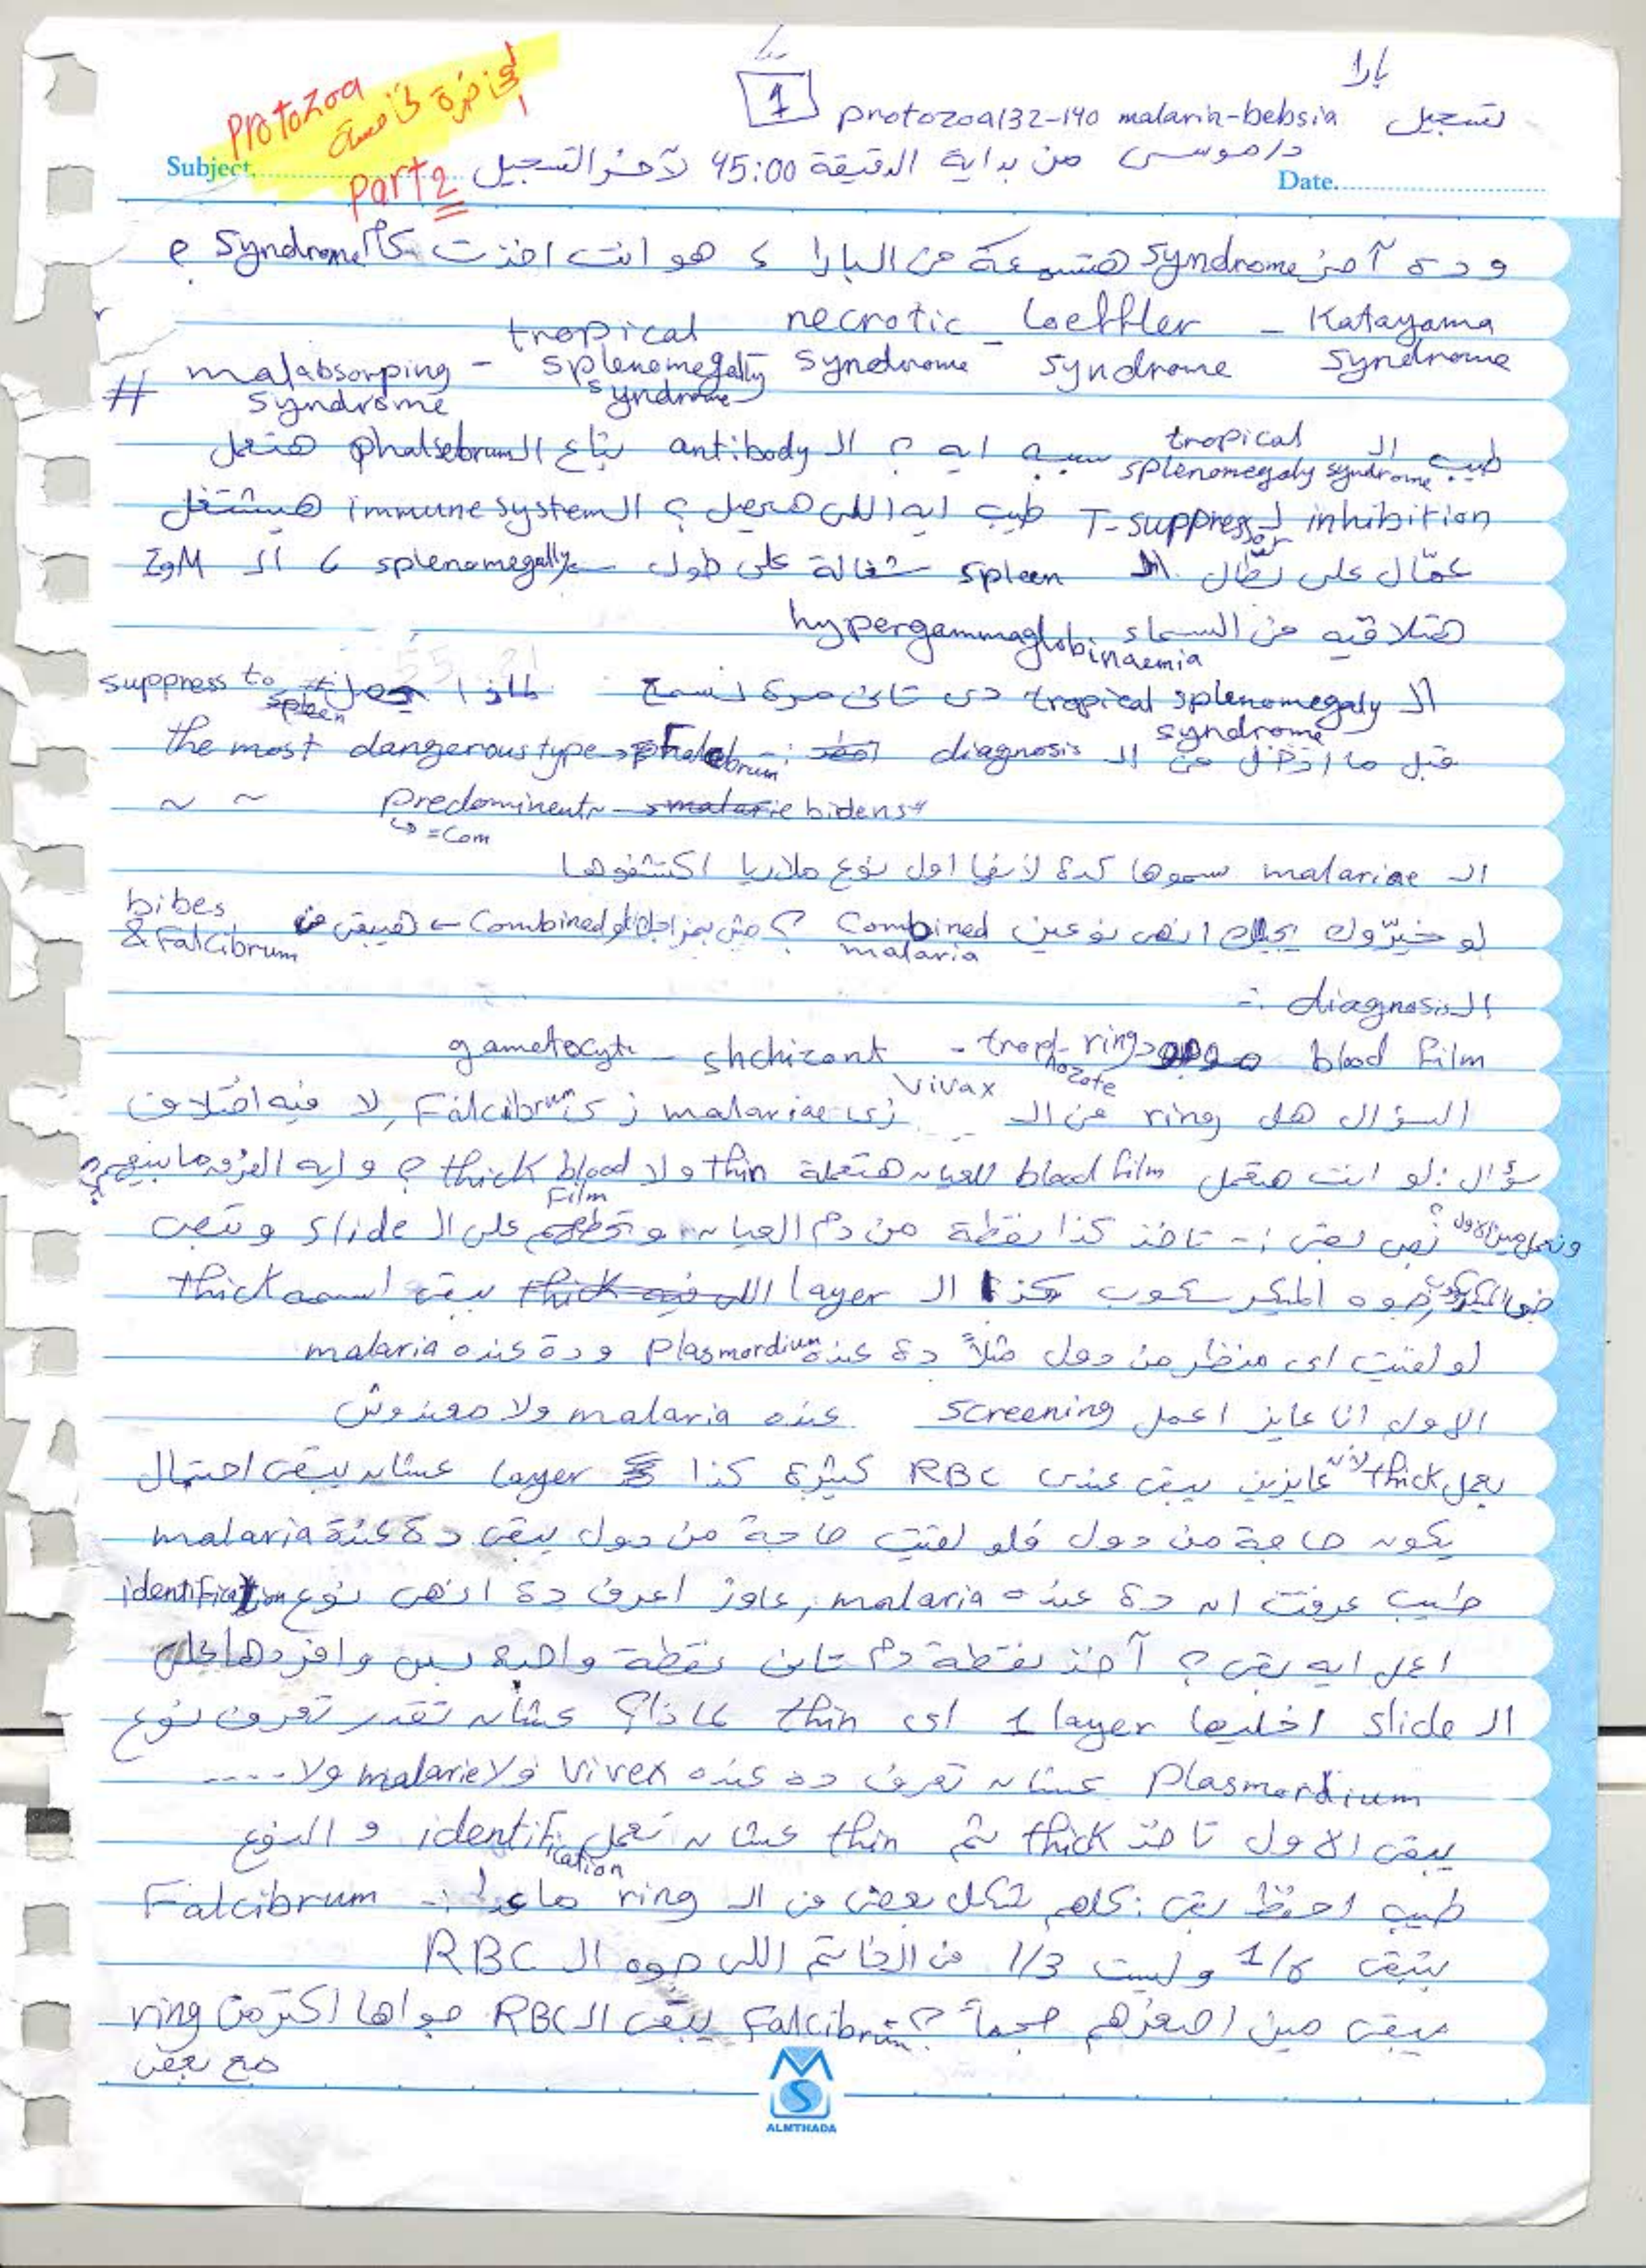 بارا
1
Protozoa
المحاضرة الخامسة
part 2
تسجيل protozoa 132-140 malaria-bebsia
د/موسى من بداية الدقيقة 45:00 لآخر التسجيل
Subject
Date
و ده آخر syndrome هتسمعه من البارا، هو انت اخذت كام syndrome؟
Katayama syndrome - Loeffler syndrome - necrotic syndrome
tropical splenomegally syndrome - malabsorping syndrome #
طيب الـ tropical splenomegaly syndrome سببه ايه؟ الـ antibody بتاع الـ phalsebrum هتعمل
inhibition لـ T-suppressor طيب ايه اللى هيحصل؟ الـ immune system هيشتغل
عمّال على بطّال الـ spleen شغالة على طول splenomegally، الـ IgM
هتلاقيه من السماء hypergammaglobinaemia
الـ tropical splenomegaly syndrome دى تانى مرة نسمع لماذا suppress to spleen
قبل ما ادخل من الـ diagnosis احفظ :- the most dangerous type → Falcebrum
~ ~ predominent → bidens
↳ = Com
الـ malariae سموها كدة لأنها اول نوع ملاريا اكتشفوها
لو خيّروك يجيلك انهى نوعين Combined malaria؟ مش بمزاجك لو Combined ← هيبقى من bibes & Falcibrum
الـ diagnosis :-
blood film موجود ring - trophozote - shchizont - gametocyte
السؤال هل ring من الـ vivax زى malariae زى Falcibrum, لا فيه اختلاف
سؤال: لو انت هتعمل blood film للعيان هتعمله thin ولا thick blood film؟ و ايه الفرق ما بينهم؟
ونعمل مين الاول؟ نمى بقى :- تاخد كذا نقطة من دم العيان و تحطهم على الـ slide و تبص
جوه الميكرسكوب كذا الـ layer يبقى اسمه thick
لو لقيت اى منظر من دول مثلاً ده عنده Plasmordium و دة عنده malaria
الاول انا عايز اعمل screening عنده malaria ولا معندوش
يعمل thick لأن عايزين يبقى عندى RBC كتيرة كذا layer عشان يبقى احتمال
يكون حاجة من دول فلو لقيت حاجة من دول يبقى دة عندة malaria
طيب عرفت ان دة عنده malaria, عاوز اعرف دة انهى نوع identification
اعمل ايه بقى؟ آخد نقطة دم تانى نقطة واحدة بس وافردها على
الـ slide اخليها 1 layer اى thin لماذا؟ عشان تقدر تعرف نوع
Plasmordium عشان تعرف ده عنده Vivex ولا malarie ولا ....
يبقى الاول تاخد thick ثم thin عشان تعمل identification و النوع
طيب احفظ بقى: كلهم شكل بعض من الـ ring ماعدا :- Falcibrum
بتبقى 1/6 و ليست 1/3 من الخاتم اللى جوه الـ RBC
يبقى مين اصغرهم حجماً؟ Falcibrum يبقى الـ RBC جواها اكتر من ring
مع بعض
ALMTHADA